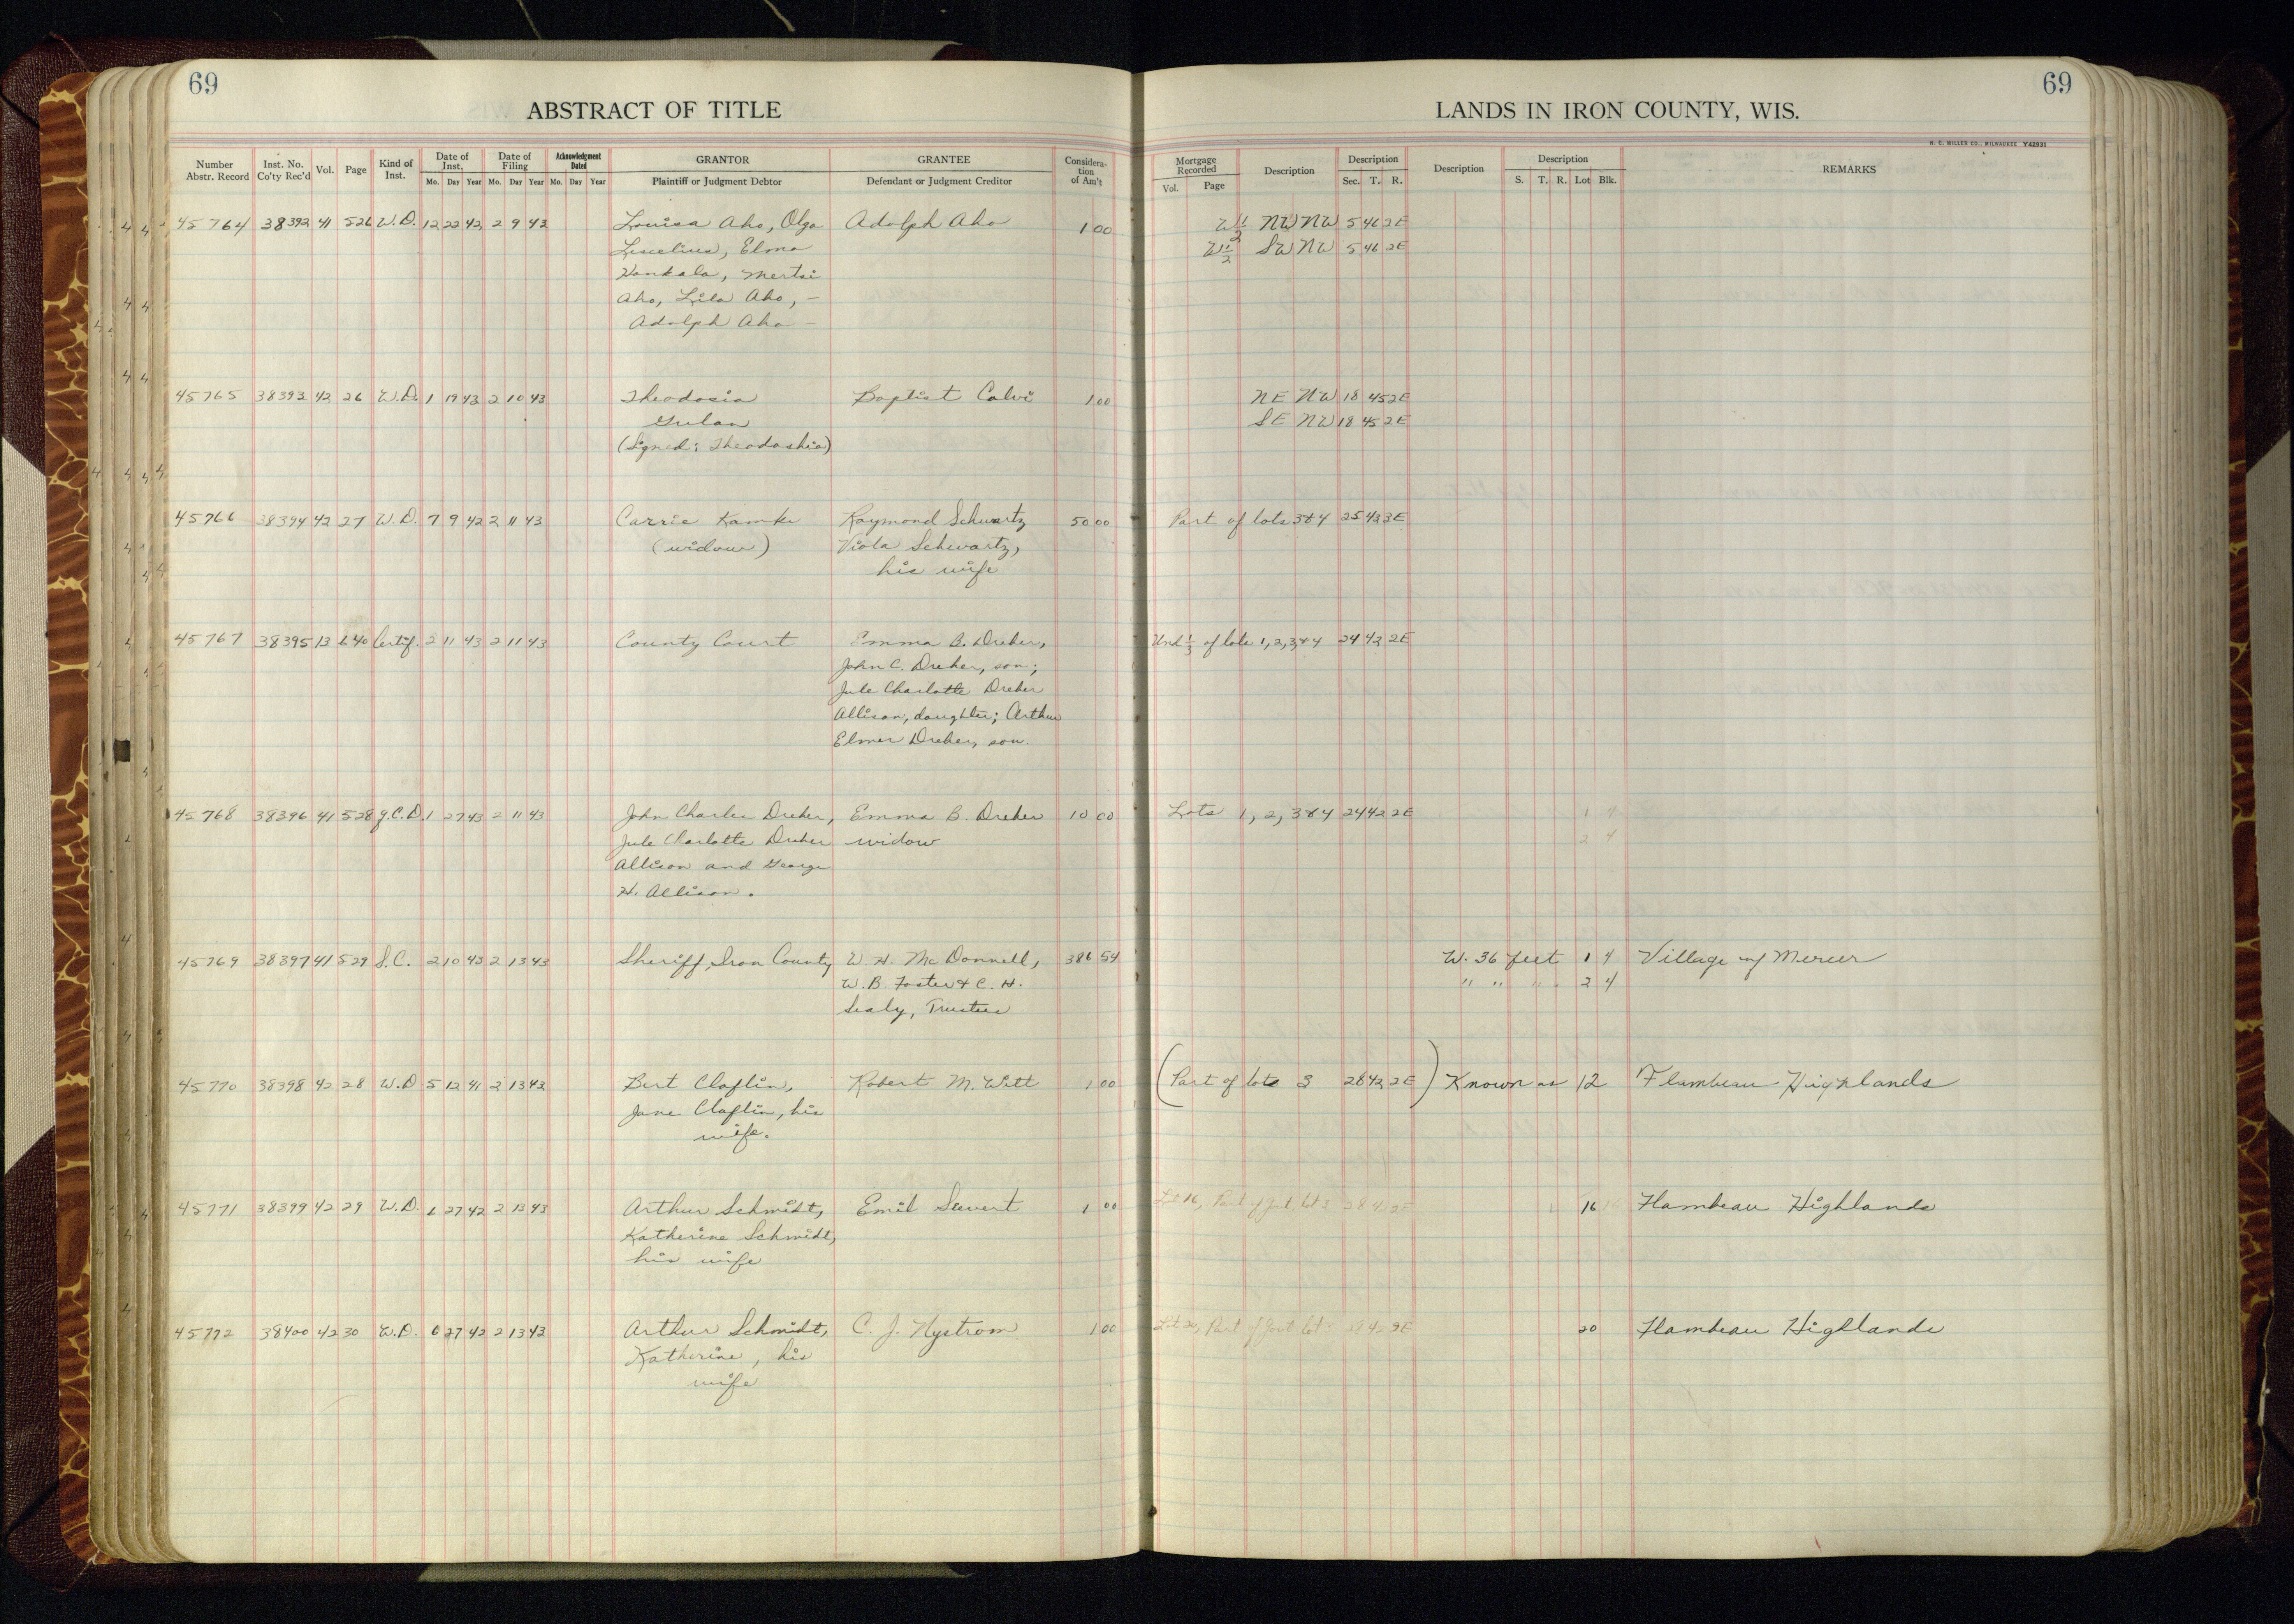 69
69
ABSTRACT OF TITLE
LANDS IN IRON COUNTY, WIS.
H. C. MILLER CO., MILWAUKEE Y42931
Number Abstr. Record
Inst. No. Co'ty Rec'd
Vol.
Page
Kind of Inst.
Date of Inst.
Mo. Day Year
Date of Filing
Mo. Day Year
Acknowledgment Dated
Mo. Day Year
GRANTOR
Plaintiff or Judgment Debtor
GRANTEE
Defendant or Judgment Creditor
Considera-tion of Am't
Mortgage Recorded
Vol. Page
Description
Description
Sec. T. R.
Description
Description
S. T. R. Lot Blk.
REMARKS
45764 38392 41 526 W.D. 12 22 42 2 9 43 Louisa Aho, Olga Adolph Aho 1 00 W 1/2 NW NW 5 46 2E
Elma W 1/2 SW NW 5 46 2E
Aho, Lila Aho, -
Adolph Aho -
45765 38393 42 26 W.D. 1 19 43 2 10 43 Theodosia Baptist Calvi 1 00 NE NW 18 45 2E
Gulan SE NW 18 45 2E
(Signed: Theodoshia)
45766 38394 42 27 W.D. 7 9 42 2 11 43 Carrie Kamke Raymond Schwartz 50 00 Part of lots 3&4 25 43 3E
(widow) Viola Schwartz,
his wife
45767 38395 13 640 Certif. 2 11 43 2 11 43 County Court Emma B. Dreher, Und 1/3 of lots 1,2,3&4 24 42 2E
John C. Dreher, son;
Jule Charlotte Dreher
Allison, daughter; Arthur
Elmer Dreher, son.
45768 38396 41 528 Q.C.D. 1 27 43 2 11 43 John Charles Dreher, Emma B. Dreher 10 00 Lots 1, 2, 3&4 24 42 2E 1 4
Jule Charlotte Dreher widow 2 4
Allison and George
H. Allison.
45769 38397 41 529 S.C. 2 10 43 2 13 43 Sheriff, Iron County W. H. McDonnell, 386 54 W. 36 feet 1 4 Village of Mercer
W. B. Foster & C. H. " " " . 2 4
Sealy, Trustees
45770 38398 42 28 W.D 5 12 41 2 13 43 Bert Claflin, Robert M. Witt 1 00 (Part of lots 3 28 42 2E) Known as 12 Flambeau Highlands
Jane Claflin, his
wife.
45771 38399 42 29 W.D. 6 27 42 2 13 43 Arthur Schmidt, Emil Sievert 1 00 Lot 16, Part of Govt. lot 3 28 42 2E 16 Flambeau Highlands
Katherine Schmidt,
his wife
45772 38400 42 30 W.D. 6 27 42 2 13 43 Arthur Schmidt, C. J. Nystrom 1 00 Lot 20, Part of Govt lot 28 42 2E 20 Flambeau Highlands
Katherine, his
wife